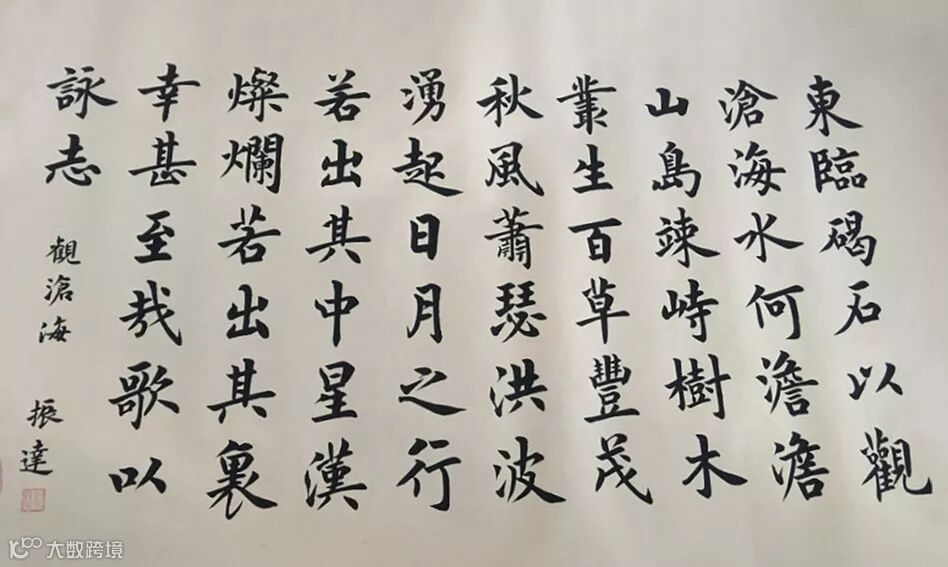 東臨碣石以觀
滄海水何澹澹
山島竦峙樹木
叢生百草豐茂
秋風蕭瑟洪波
湧起日月之行
若出其中星漢
燦爛若出其裏
幸甚至哉歌以
詠志
觀滄海
振達
大数跨境